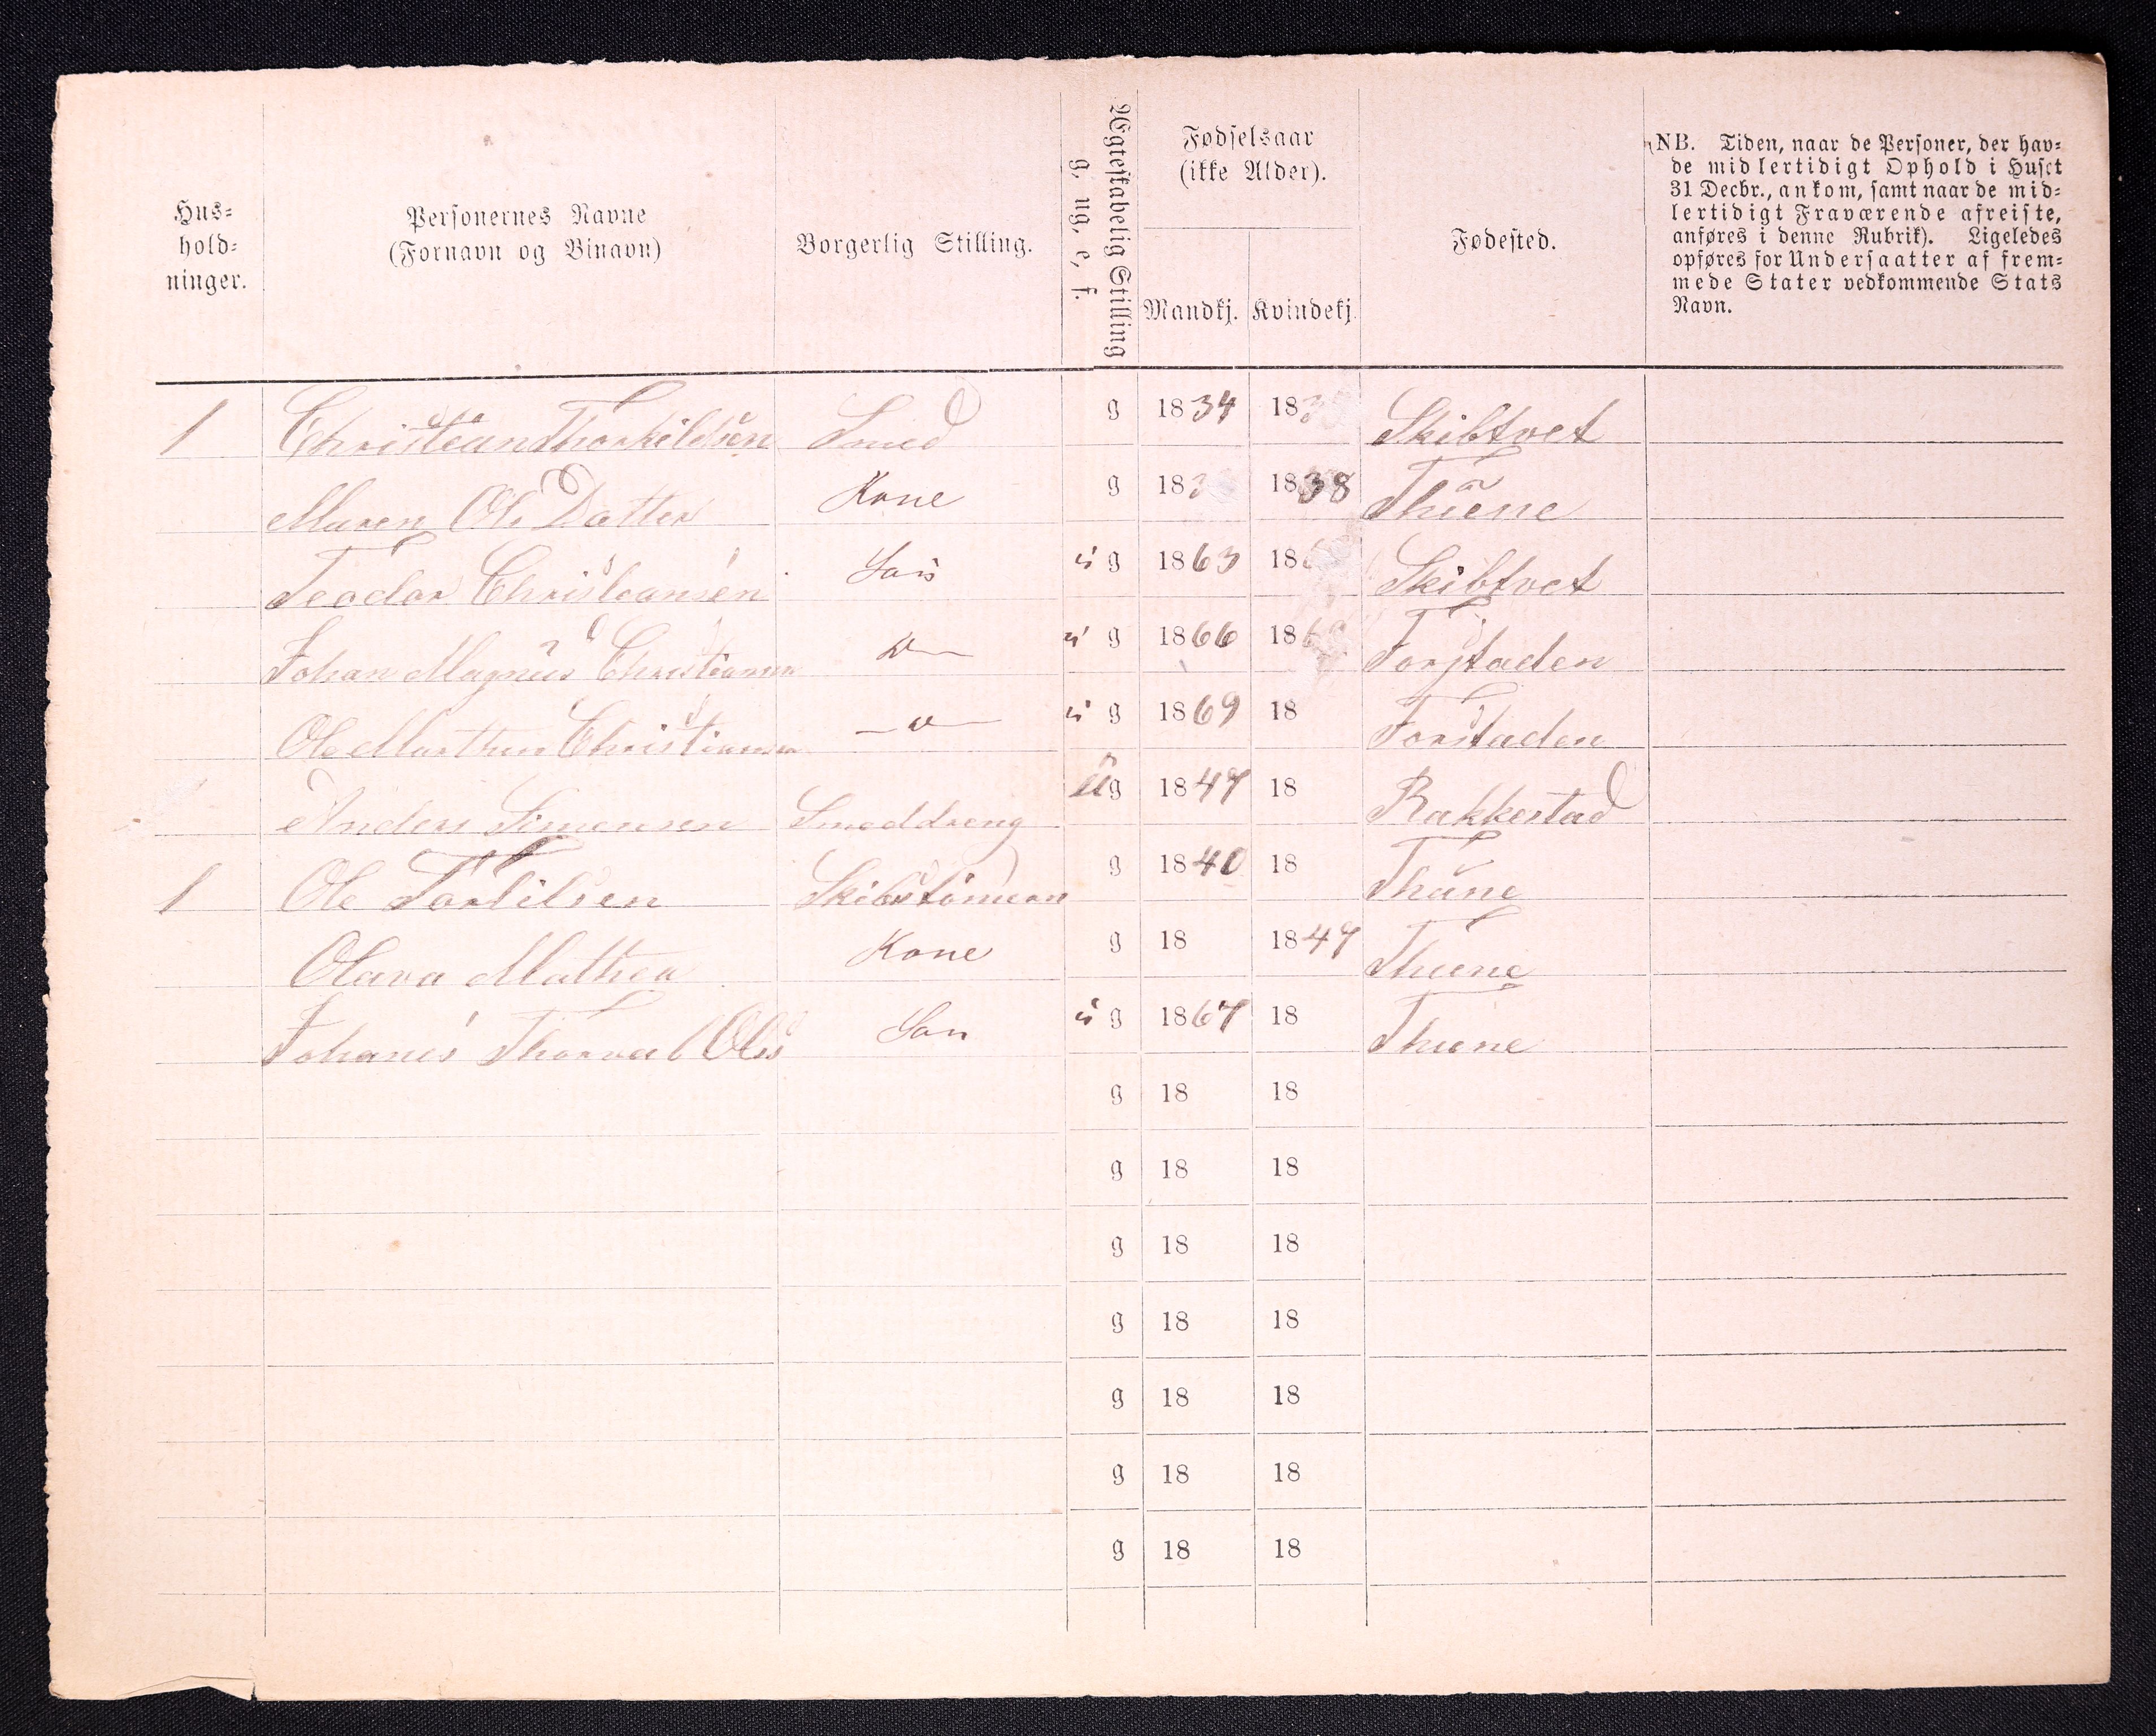 Hus-
hold-
ninger.
Personernes Navne
(Fornavn og Binavn)
Borgerlig Stilling.
Ægteskabelig Stilling
g, ug, e, f.
Fødselsaar
(ikke Alder).
Mandkj. Kvindekj.
Fødested.
(NB. Tiden, naar de Personer, der hav-
de midlertidigt Ophold i Huset
31 Decbr., ankom, samt naar de mid-
lertidigt Fraværende afreiste,
anføres i denne Rubrik). Ligeledes
opføres for Undersaatter af frem-
mede Stater vedkommende Stats
Navn.
1 Christian Thorkildsen Smed g 1834 18 Skibtvet
Maren Ols Datter Kone g 18 1838 Thune
Teodor Christiansen Søn ug 1863 18 Skibtvet
Johan Magnus Christiansen D— ug 1866 18 Forstaden
Ole Marthin Christiansen —D— ug 1869 18 Forstaden
Anders Simensen Smeddreng ug 1847 18 Rakkestad
1 Ole Torkilsen Skibstømerm g 1840 18 Thune
Olava Mathea Kone g 18 1847 Thune
Johanes Thorval Ols Søn ug 1867 18 Thune
g 18 18
g 18 18
g 18 18
g 18 18
g 18 18
g 18 18
g 18 18